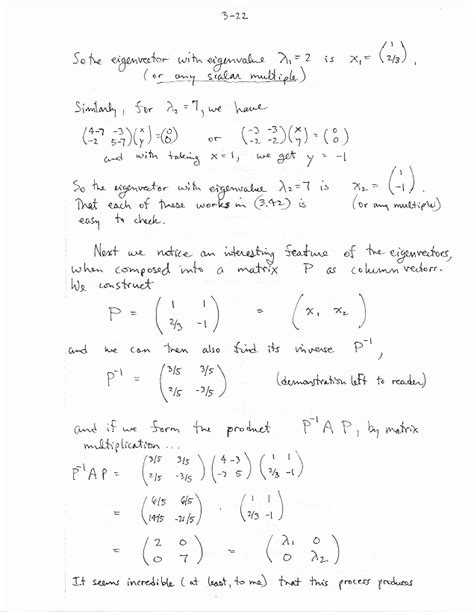 3-22
So the eigenvector with eigenvalue λ₁ = 2 is x₁ = (1; 2/3),
(or any scalar multiple)
Similarly, for λ₂ = 7, we have
(4-7 -3; -2 5-7)(x; y) = (0; 0) or (-3 -3; -2 -2)(x; y) = (0; 0)
and with taking x = 1, we get y = -1
So the eigenvector with eigenvalue λ₂ = 7 is x₂ = (1; -1).
That each of these works in (3.42) is (or any multiple)
easy to check.
Next we notice an interesting feature of the eigenvectors,
when composed into a matrix P as column vectors.
We construct
P = (1 1; 2/3 -1) = (x₁ x₂)
and we can then also find its inverse P⁻¹,
P⁻¹ = (3/5 3/5; 2/5 -3/5) (demonstration left to reader)
and if we form the product P⁻¹ A P, by matrix
multiplication ...
P⁻¹ A P = (3/5 3/5; 2/5 -3/5) (4 -3; -2 5) (1 1; 2/3 -1)
= (6/5 6/5; 14/5 -21/5) · (1 1; 2/3 -1)
= (2 0; 0 7) = (λ₁ 0; 0 λ₂)
It seems incredible (at least, to me) that this process produces